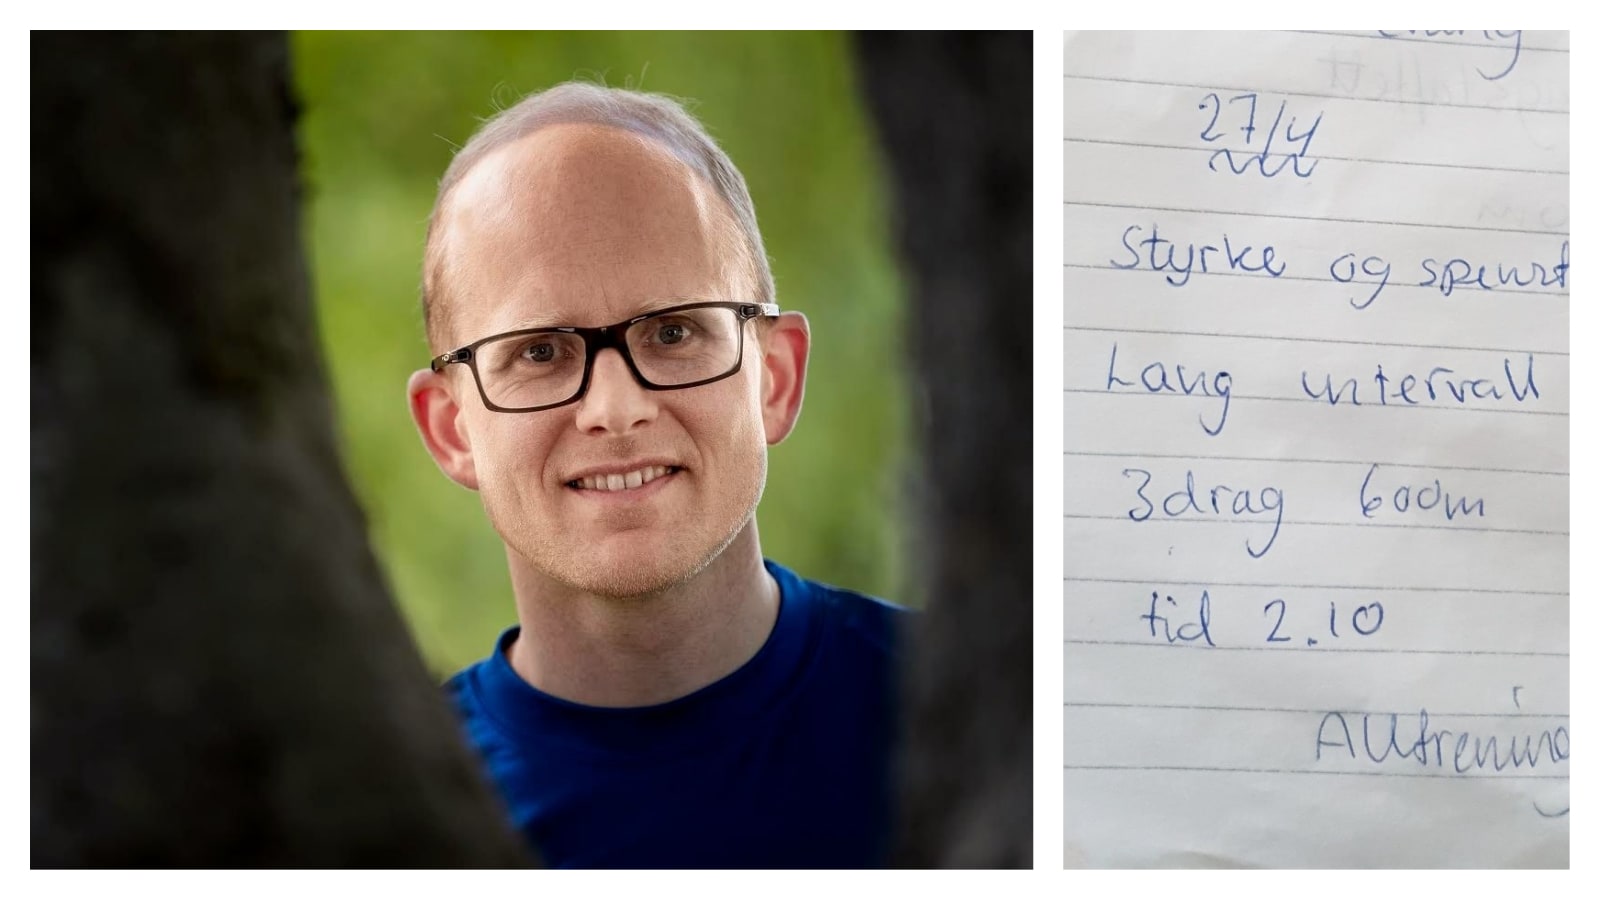 27/4
Styrke og spenst
Lang intervall
3drag 600m
tid 2.10